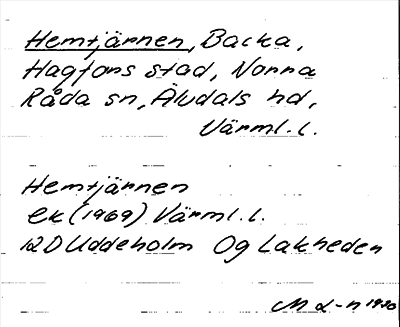 Hemtjärnen, Backa,
Hagfors stad, Norra
Råda sn, Älvdals hd,
Värml. l.
Hemtjärnen
ek (1969) Värml. l.
12D Uddeholm 0g Lakheden
M L-n 1930